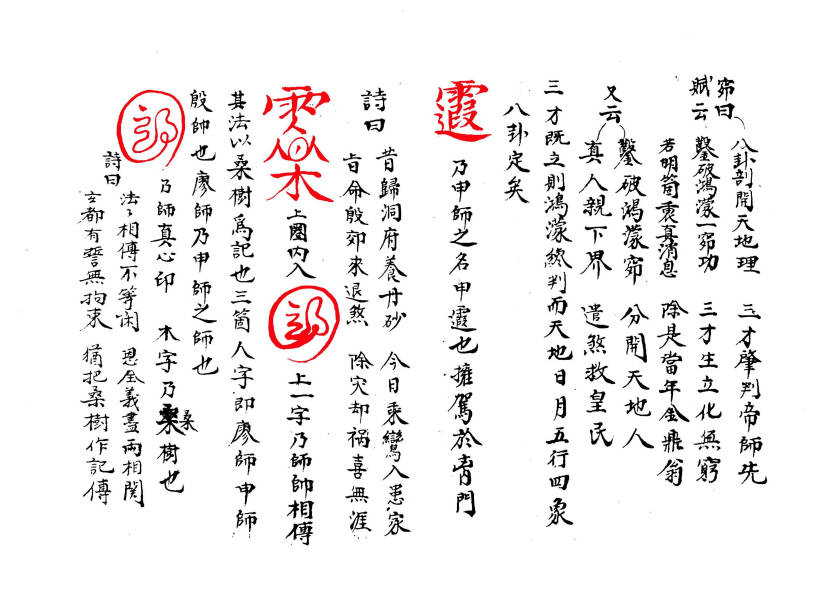 窍曰 八卦剖開天地理 三才肇判帝師先
賦云 鑿破鴻濛一窍功 三才生立化無窮
若明箇裏真消息 除是當年金鼎翁
又云 鑿破鴻濛窍 分開天地人
真人親下界 遣煞救皇民
三才既立則鴻濛終判而天地日月五行四象
八卦定矣
乃申師之名申霞也擁駕於青門
詩曰 昔歸洞府養丹砂 今日乘鸞入患家
旨命殷郊來退煞 除穴却禍喜無涯
上圈内入 上一字乃師帥相傳
其法以桑樹爲記也三箇人字即廖師申師
殷帥也廖師乃申師之師也
乃師真心印 木字乃桑樹也
詩曰 法法相傳不等閑 恩全義盡兩相関
玄都有誓無拘束 猶把桑樹作記傳